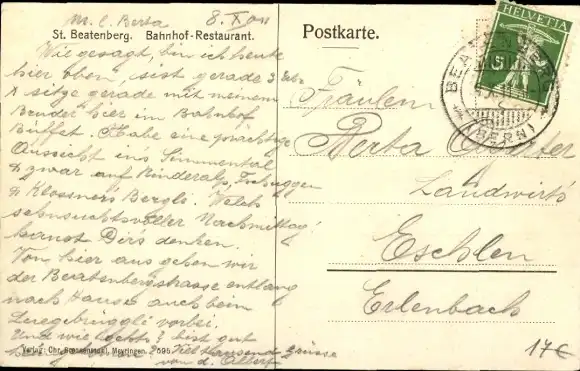 M. l. Berta 8. X 011
St. Beatenberg. Bahnhof-Restaurant.
Wie gesagt, bin ich heute
hier oben, sist gerade 3
& sitze gerade mit meinem
Bruder hier im Bahnhof
Buffet. Habe eine prächtige
Aussicht ins Simmental
& zwar auf Rinderalp,
& Klossners Bergli. Welch
sehnsuchtsvoller Nachmittag!
kannst Dirs denken.
Von hier aus gehen wir
der Beatenbergstrasse entlang
nach Hause auch beim
vorbei.
Und wie gehts? bist gut
Viel tausend Grüsse
von d.
Verlag: Chr. Brennenstuhl, Meyringen. 7595
Postkarte.
HELVETIA
5
BEATENBERG
(BERN)
Fräulein
Berta
Landwirts
Eschlen
Erlenbach
17€